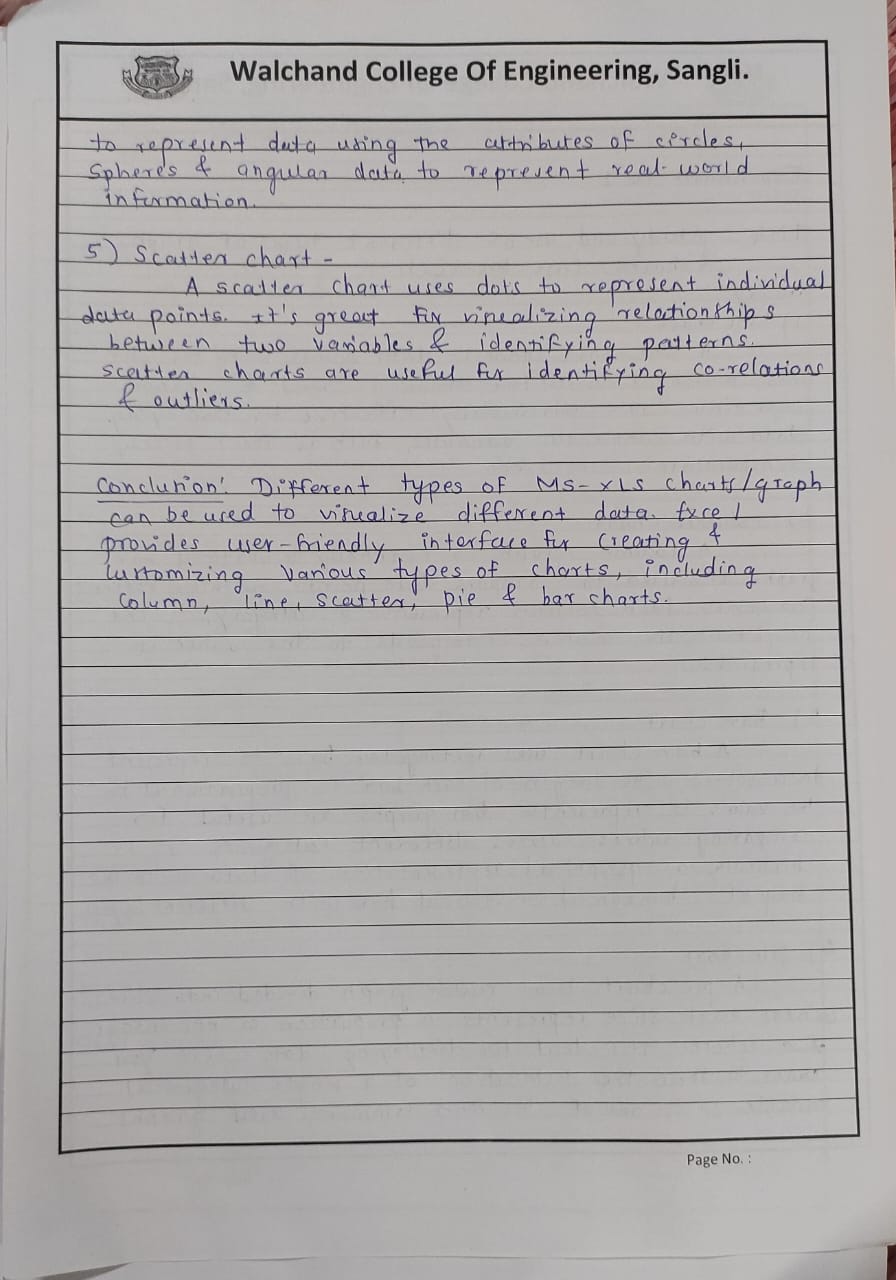 Walchand College Of Engineering, Sangli.
to represent data using the attributes of circles,
spheres & angular data to represent real-world
information.
5) Scatter chart -
A scatter chart uses dots to represent individual
data points. It's great for visualizing relationships
between two variables & identifying patterns.
scatter charts are useful for identifying co-relations
& outliers.
Conclusion: Different types of MS-XLS charts/graph
can be used to visualize different data. Excel
provides user-friendly interface for creating &
customizing various types of charts, including
column, line, scatter, pie & bar charts.
Page No. :